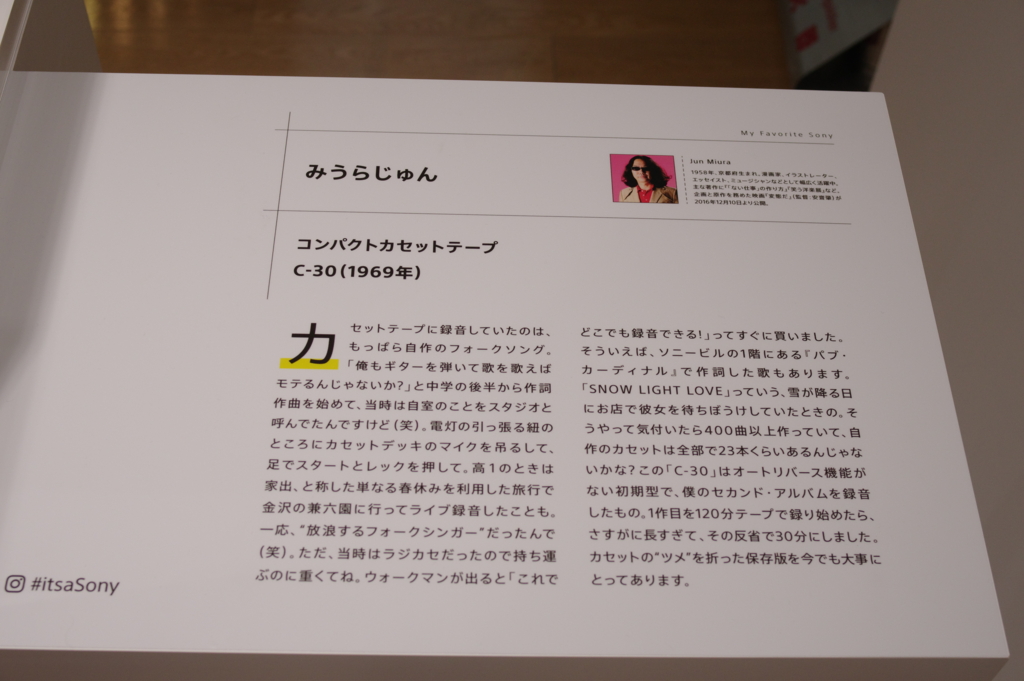 My Favorite Sony
みうらじゅん
Jun Miura
1958年、京都府生まれ。漫画家、イラストレーター、
エッセイスト、ミュージシャンなどとして幅広く活躍中。
主な著作に『「ない仕事」の作り方』『笑う洋楽展』など。
企画と原作を務めた映画『変態だ』(監督:安齋肇)が
2016年12月10日より公開。
コンパクトカセットテープ
C-30(1969年)
カセットテープに録音していたのは、
もっぱら自作のフォークソング。
「俺もギターを弾いて歌を歌えば
モテるんじゃないか?」と中学の後半から作詞
作曲を始めて、当時は自室のことをスタジオと
呼んでたんですけど(笑)。電灯の引っ張る紐の
ところにカセットデッキのマイクを吊るして、
足でスタートとレックを押して。高1のときは
家出、と称した単なる春休みを利用した旅行で
金沢の兼六園に行ってライブ録音したことも。
一応、“放浪するフォークシンガー”だったんで
(笑)。ただ、当時はラジカセだったので持ち運
ぶのに重くてね。ウォークマンが出ると「これで
どこでも録音できる!」ってすぐに買いました。
そういえば、ソニービルの1階にある『パブ・
カーディナル』で作詞した歌もあります。
「SNOW LIGHT LOVE」っていう、雪が降る日
にお店で彼女を待ちぼうけしていたときの。そ
うやって気付いたら400曲以上作っていて、自
作のカセットは全部で23本くらいあるんじゃな
いかな? この「C-30」はオートリバース機能が
ない初期型で、僕のセカンド・アルバムを録音
したもの。1作目を120分テープで録り始めたら、
さすがに長すぎて、その反省で30分にしました。
カセットの“ツメ”を折った保存版を今でも大事に
とってあります。
#itsaSony